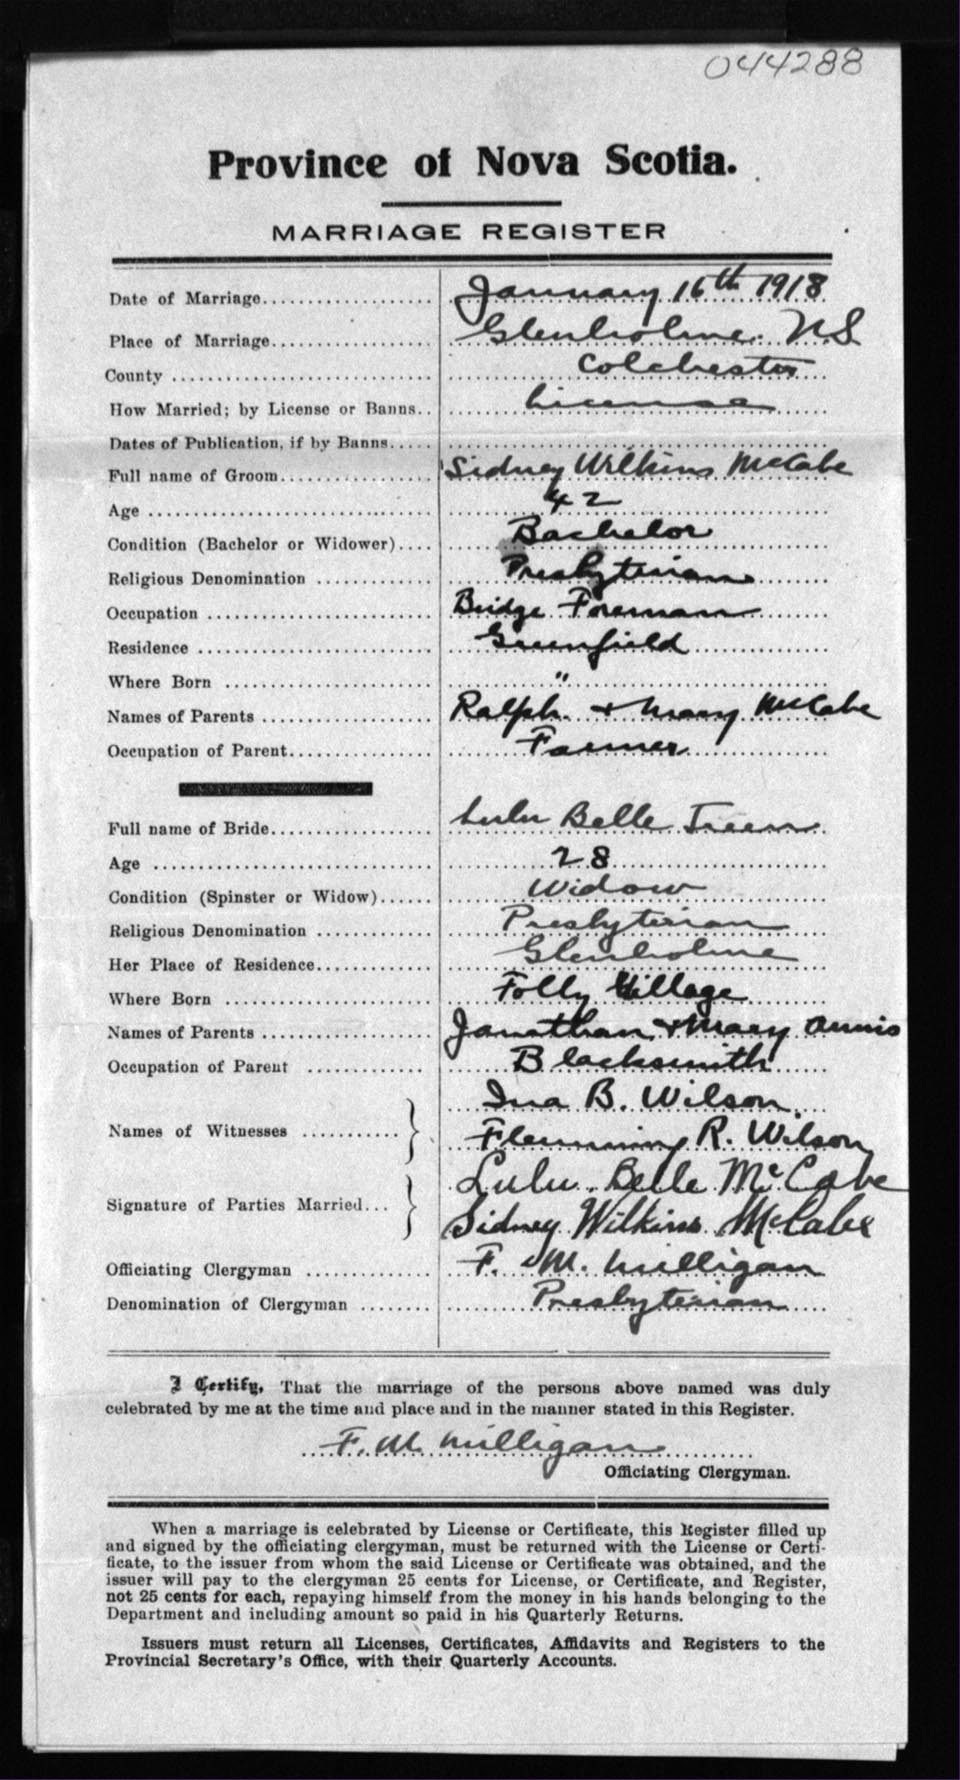 044288
Province of Nova Scotia.
MARRIAGE REGISTER
Date of Marriage January 16th 1918
Place of Marriage Glenholme N.S
County Colchester
How Married; by License or Banns License
Dates of Publication, if by Banns
Full name of Groom Sidney Wilkins McCabe
Age 42
Condition (Bachelor or Widower) Bachelor
Religious Denomination Presbyterian
Occupation Bridge Foreman
Residence Greenfield
Where Born "
Names of Parents Ralph & Mary McCabe
Occupation of Parent Farmer
Full name of Bride Lulu Belle Treen
Age 28
Condition (Spinster or Widow) Widow
Religious Denomination Presbyterian
Her Place of Residence Glenholme
Where Born Folly Village
Names of Parents Jonathan & Mary Annis
Occupation of Parent Blacksmith
Names of Witnesses Ina B. Wilson
Flemming R. Wilson
Signature of Parties Married Lulu Belle McCabe
Sidney Wilkins McCabe
Officiating Clergyman F. M. Milligan
Denomination of Clergyman Presbyterian
I Certify, That the marriage of the persons above named was duly
celebrated by me at the time and place and in the manner stated in this Register.
F. M. Milligan
Officiating Clergyman.
When a marriage is celebrated by License or Certificate, this Register filled up
and signed by the officiating clergyman, must be returned with the License or Certi-
ficate, to the issuer from whom the said License or Certificate was obtained, and the
issuer will pay to the clergyman 25 cents for License, or Certificate, and Register,
not 25 cents for each, repaying himself from the money in his hands belonging to the
Department and including amount so paid in his Quarterly Returns.
Issuers must return all Licenses, Certificates, Affidavits and Registers to the
Provincial Secretary's Office, with their Quarterly Accounts.